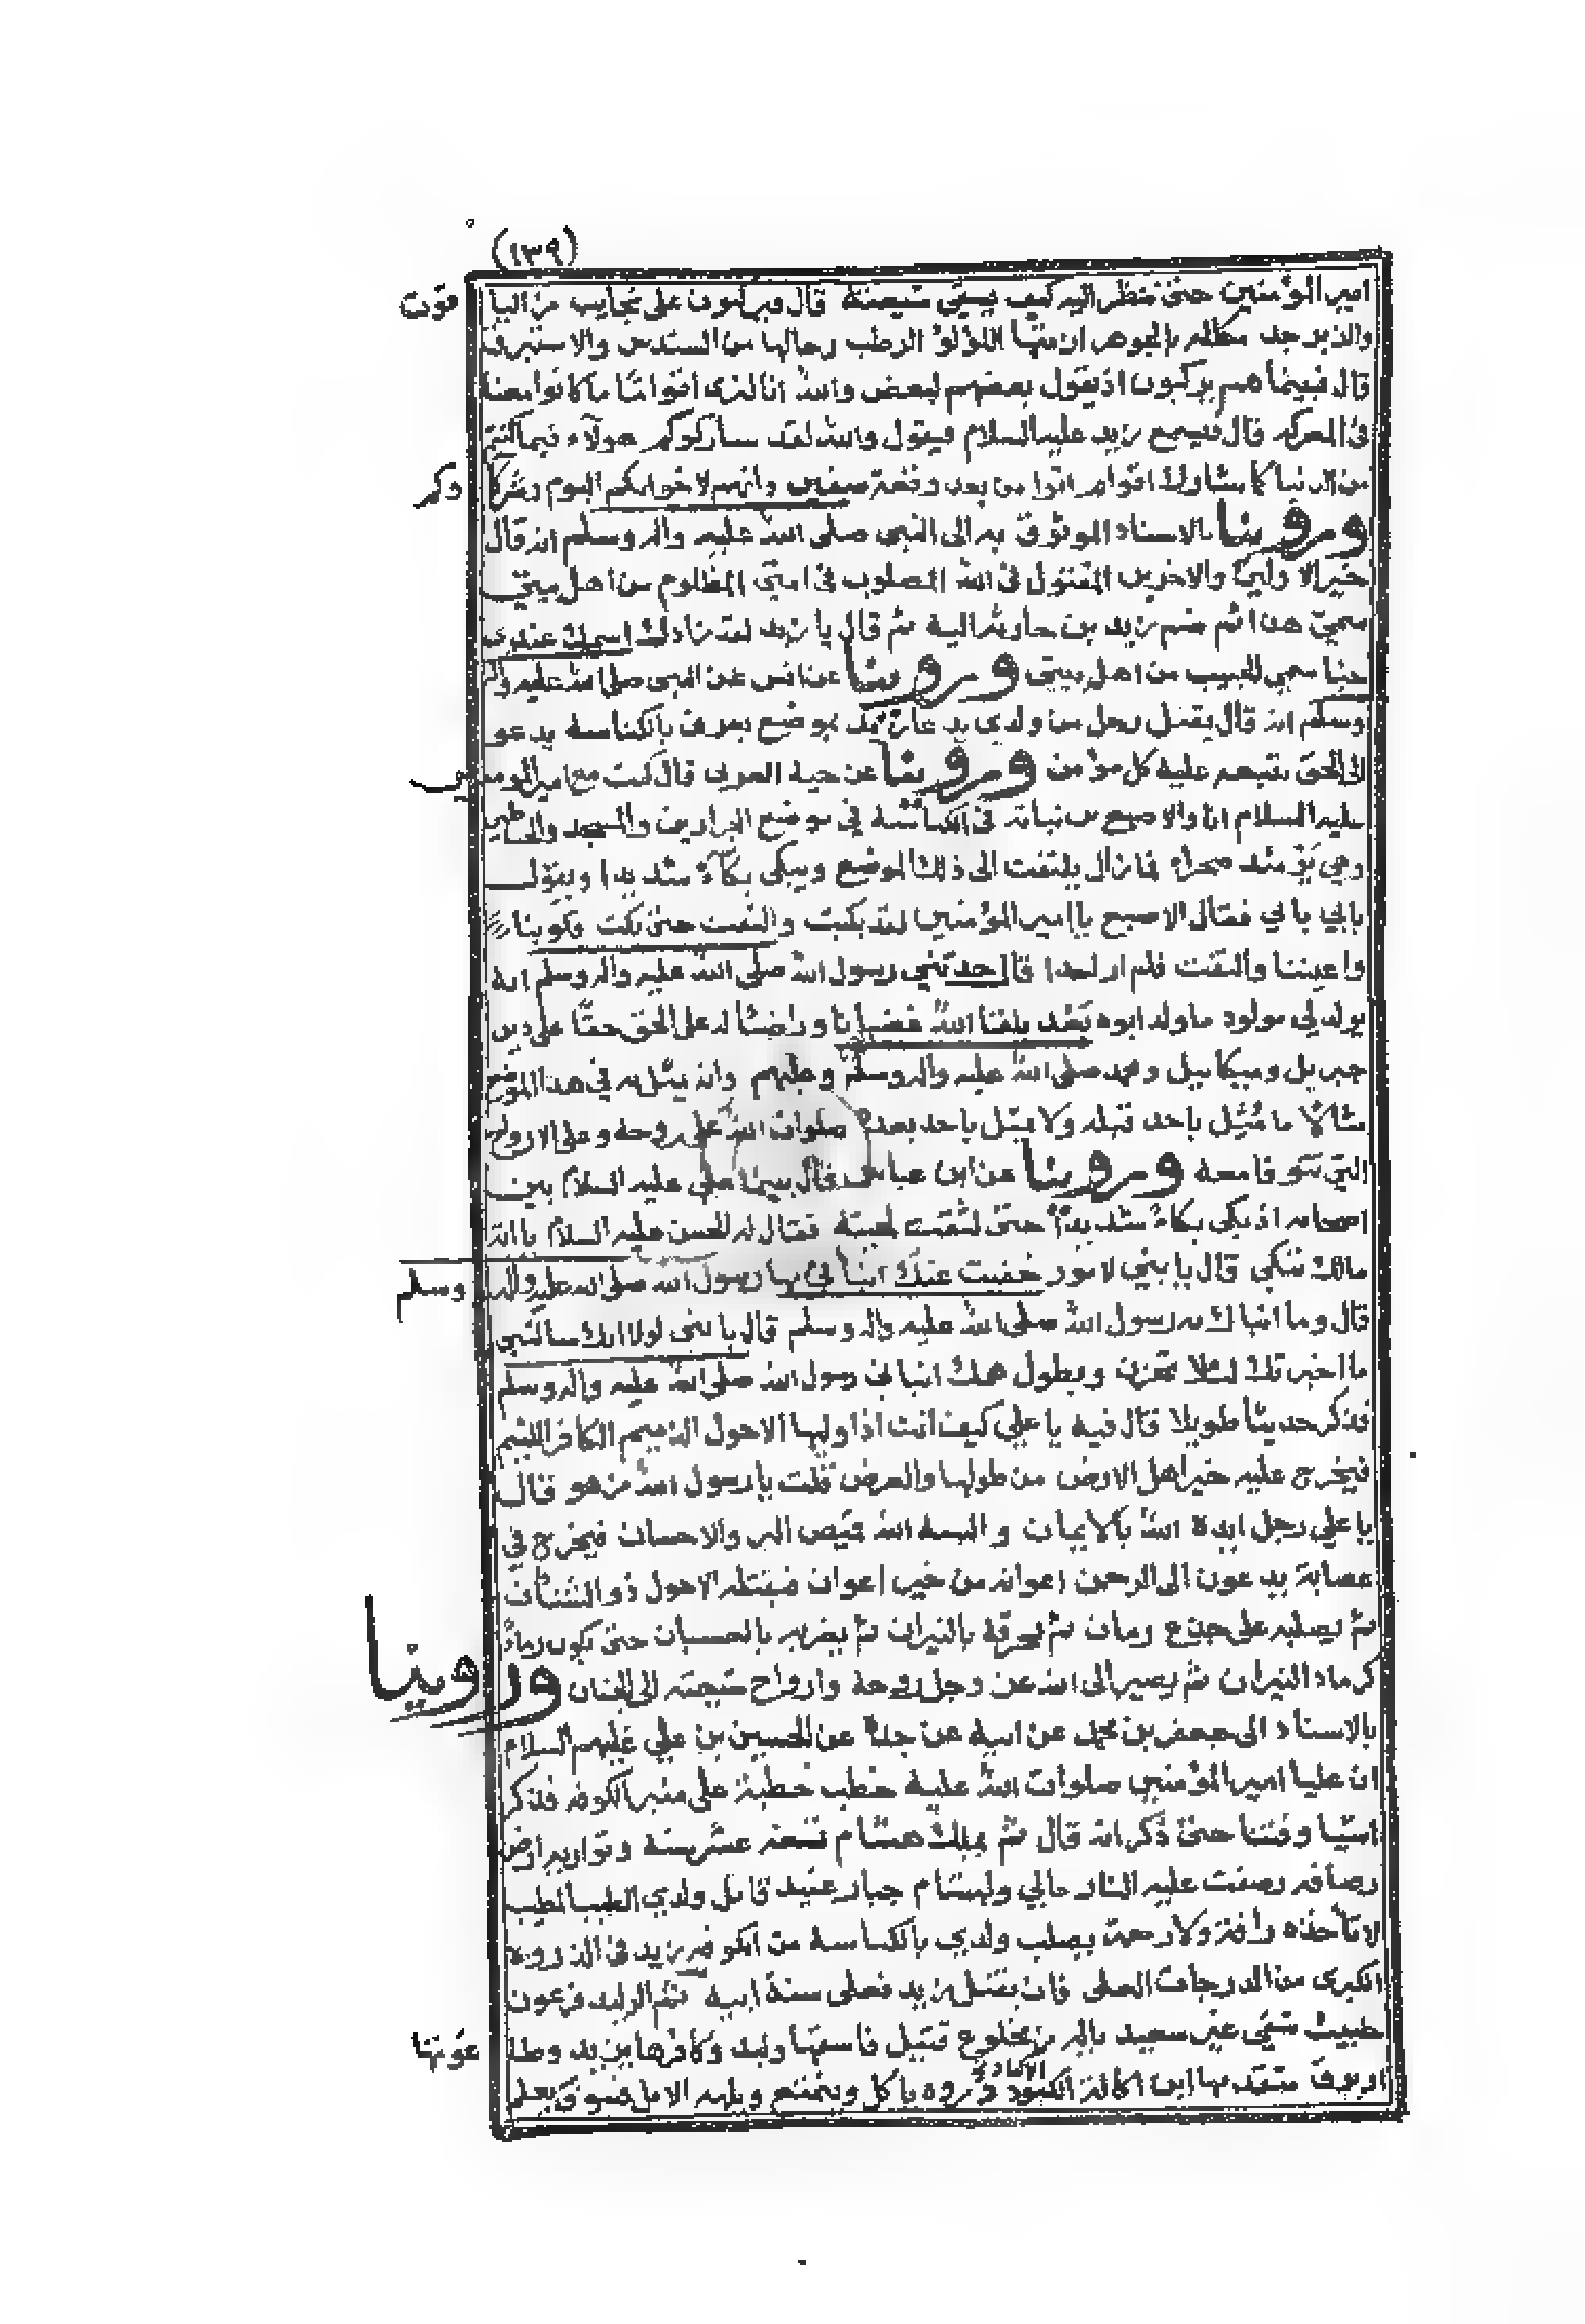 (١٣٩)
امير المؤمنين حتى تنظر اليه كيف يسقى شيعته قال فيركبون على نجايب من الياقوت
والزبرجد مكلله بالجوهر ازمتها اللؤلؤ الرطب رحالها من السندس والاستبرق
قال فبينما هم يركبون اذ يقول بعضهم لبعض والله انا لنرى اقواما ما كانوا معنا
في المعركه قال فيسمع زيد عليه السلام فيقول والله لقد ساركوكم هولآء فيما كنتم
من الدنيا كما شارك اقوام اتوا من بعد وقعة صفين وانهم لاخوانكم اليوم وشركاوكم
وروينا بالاسناد الموثوق به الى النبي صلى الله عليه واله وسلم انه قال
خير الاولين والاخرين المقتول في الله المصلوب في امتي المظلوم من اهل بيتي
سمي هذا ثم ضم زيد بن حارثه اليه ثم قال يا زيد لقد زادك اسمك عندي
حبا سمي الحبيب من اهل بيتي وروينا عن انس عن النبي صلى الله عليه واله
وسلم انه قال يقتل رجل من ولدي يدعا زيد بموضع يعرف بالكناسه يدعو
الى الحق يتبعه عليه كل مؤمن وروينا عن حبة العرني قال كنت مع امير المومنين
عليه السلام انا والاصبع بن نباتة في الكناسة في موضع الجرارين والمسجد والخياطين
وهي يومئذ صحراء فما زال يلتفت الى ذلك الموضع ويبكي بكآء شديدا ويقول
بابي بابي فقال الاصبع يا امير المؤمنين لقد بكيت والتفت حتى بكت قلوبنا
واعيننا والتفت فلم ار احدا قال حدثني رسول الله صلى الله عليه واله وسلم انه
يولد لي مولود ما ولد ابوه بعد يلقا الله غضبانا وراضيا له على الحق حقا على دين
جبريل وميكاييل ومحمد صلى الله عليه واله وسلم وعليهم وانه يمثل به في هذا الموضع
مثالا ما مثل باحد قبله ولا يمثل باحد بعده صلوات الله على روحه وعلى الارواح
التي تتوفا معه وروينا عن ابن عباس قال بينما علي عليه السلام بين
اصحابه اذ بكى بكاء شديدا حتى لثقت لحيته فقال له الحسن عليه السلام يا ابة
مالك تبكي قال يا بني لامور خفيت عنك انبأني بها رسول الله صلى الله عليه واله وسلم
قال وما انباك به رسول الله صلى الله عليه واله وسلم قال يا بني لولا انك سالتني
ما اخبرتك لئلا تحزن ويطول همك انباني رسول الله صلى الله عليه واله وسلم
فذكر حديثا طويلا قال فيه يا علي كيف انت اذا وليها الاحول الذميم الكافر اللئيم
فيخرج عليه خير اهل الارض من طولها والعرض قلت يا رسول الله من هو قال
يا علي رجل ايده الله بالايمان والبسه الله قميص البر والاحسان فيخرج في
عصابة يدعون الى الرحمن اعوانه من خير اعوان فيقتله الاحول ذو الشنئان
ثم يصلبه على جذع رمان ثم يحرقه بالنيران ثم يضربه بالعسبان حتى يكون رمادا
كرماد النيران ثم تصير الى الله عز وجل روحه وارواح شيعته الى الجنان وروينا
بالاسناد الى جعفر بن محمد عن ابيه عن جده عن الحسين بن علي عليهم السلام
ان عليا امير المؤمنين صلوات الله عليه خطب خطبة على منبر الكوفه فذكر
اشيا وفتنا حتى ذكر انه قال ثم يملك هشام تسعه عشر سنه وتواريه ارض
رصافه رصفت عليه النار مالي ولهشام جبار عنيد قاتل ولدي الطيب المطيب
لا تاخذه رافة ولا رحمة يصلب ولدي بالكناسه من الكوفه زيد في الذروه
الكبرى من الدرجات العلى فان يقتل زيد فعلى سنة ابيه ثم الوليد فرعون
خبيث شقي غير سعيد ياله من مخلوع قتيل فاسقها وليد وكافرها يزيد وطاغوتها
ازيرق متقدمها ابن اكالة الكبود ذروه ياكل ويتمتع ويلهه الامل فسوف يعلم